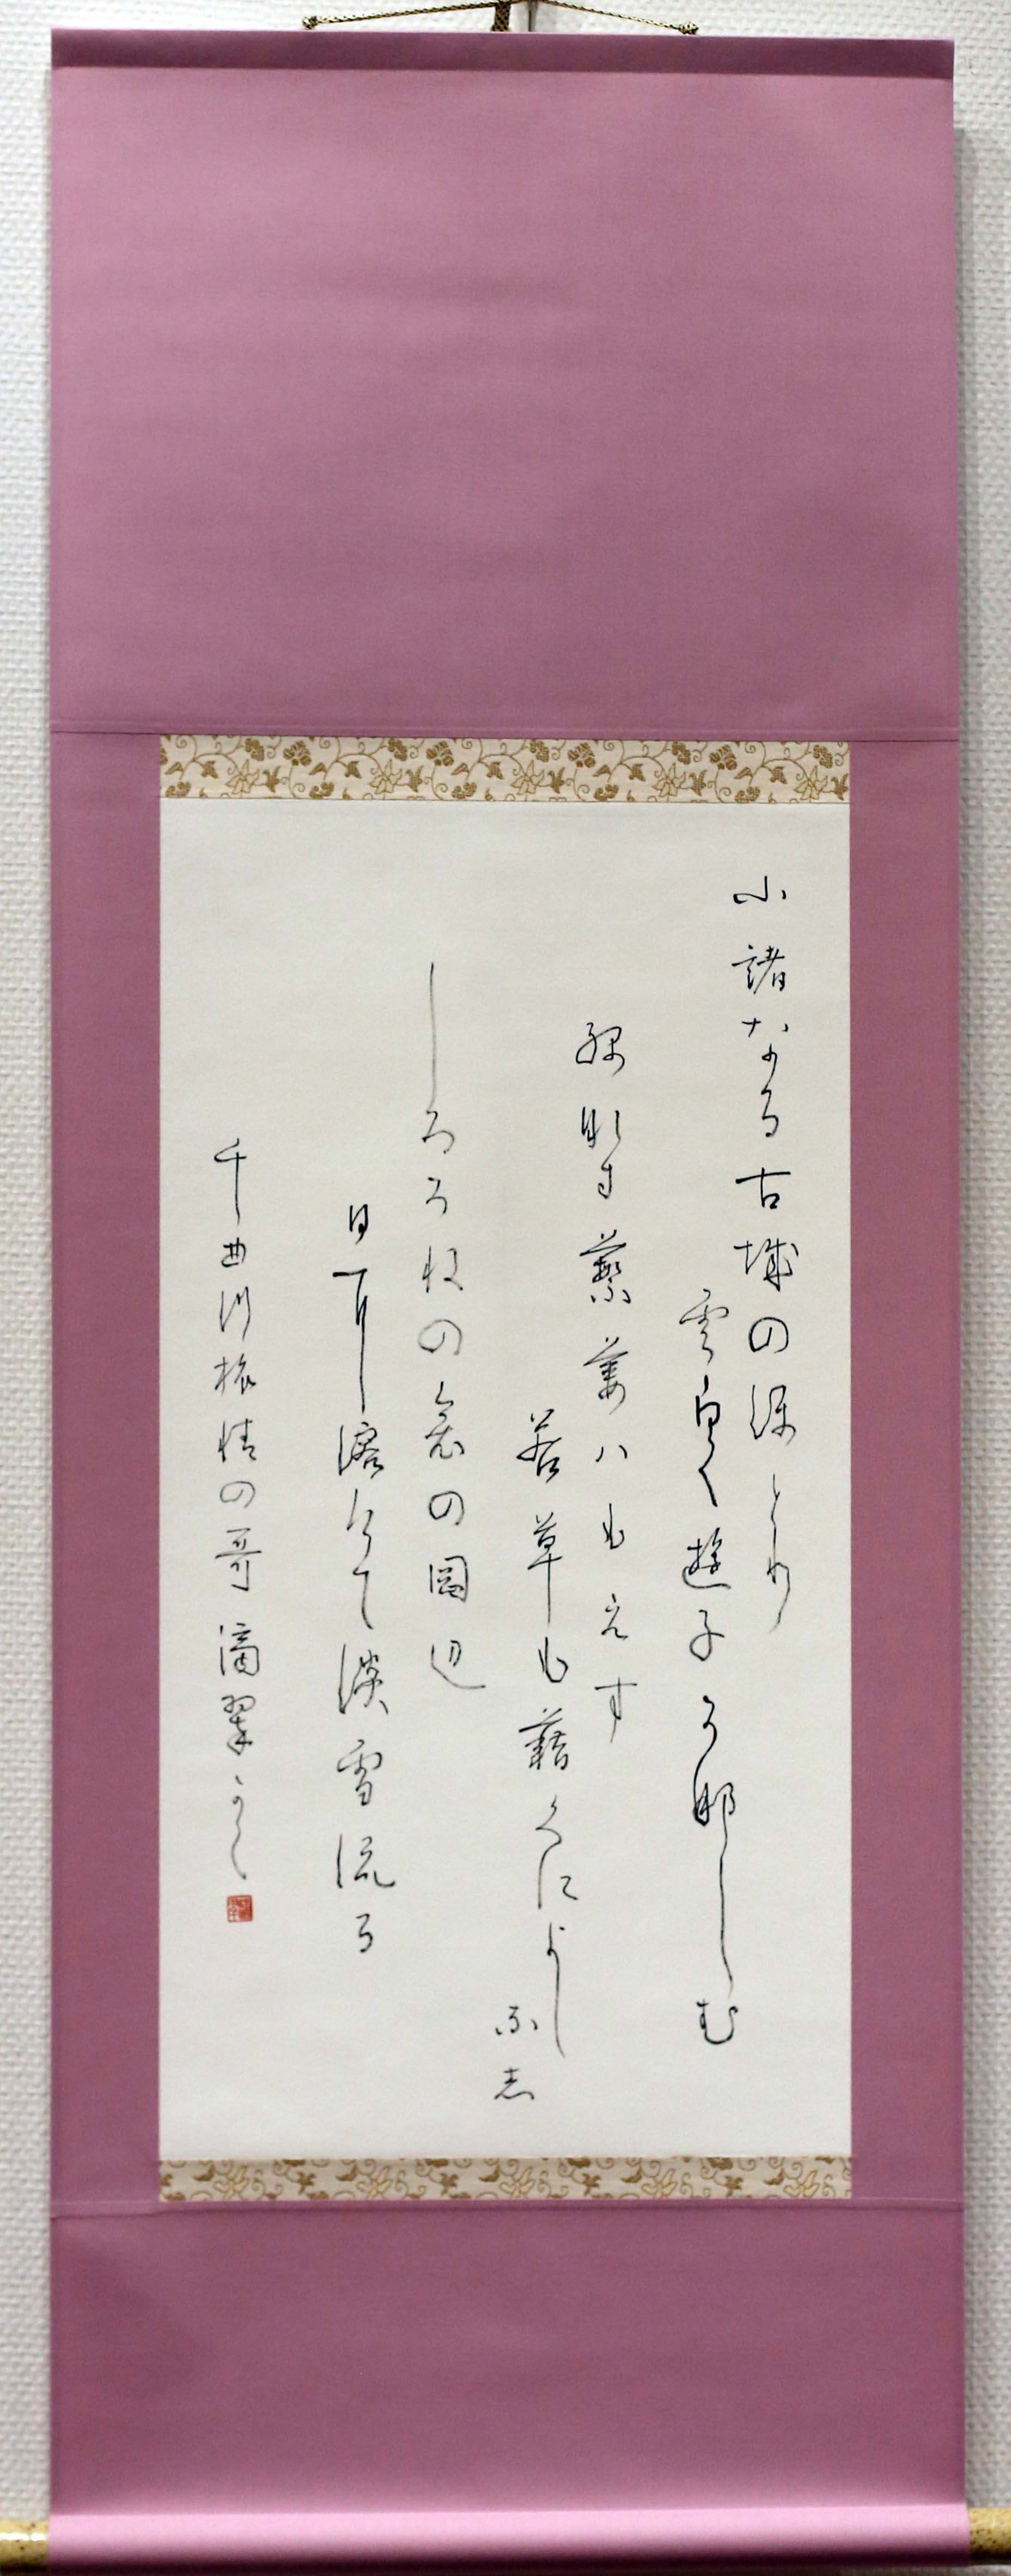 小諸なる古城のほとり
雲白く遊子か那しむ
緑那す蘩蔞ハもえす
若草も藉くによし
那志
しろかねの衾の岡辺
日耳溶けて淡雪流る
千曲川旅情の哥 滴翠かく